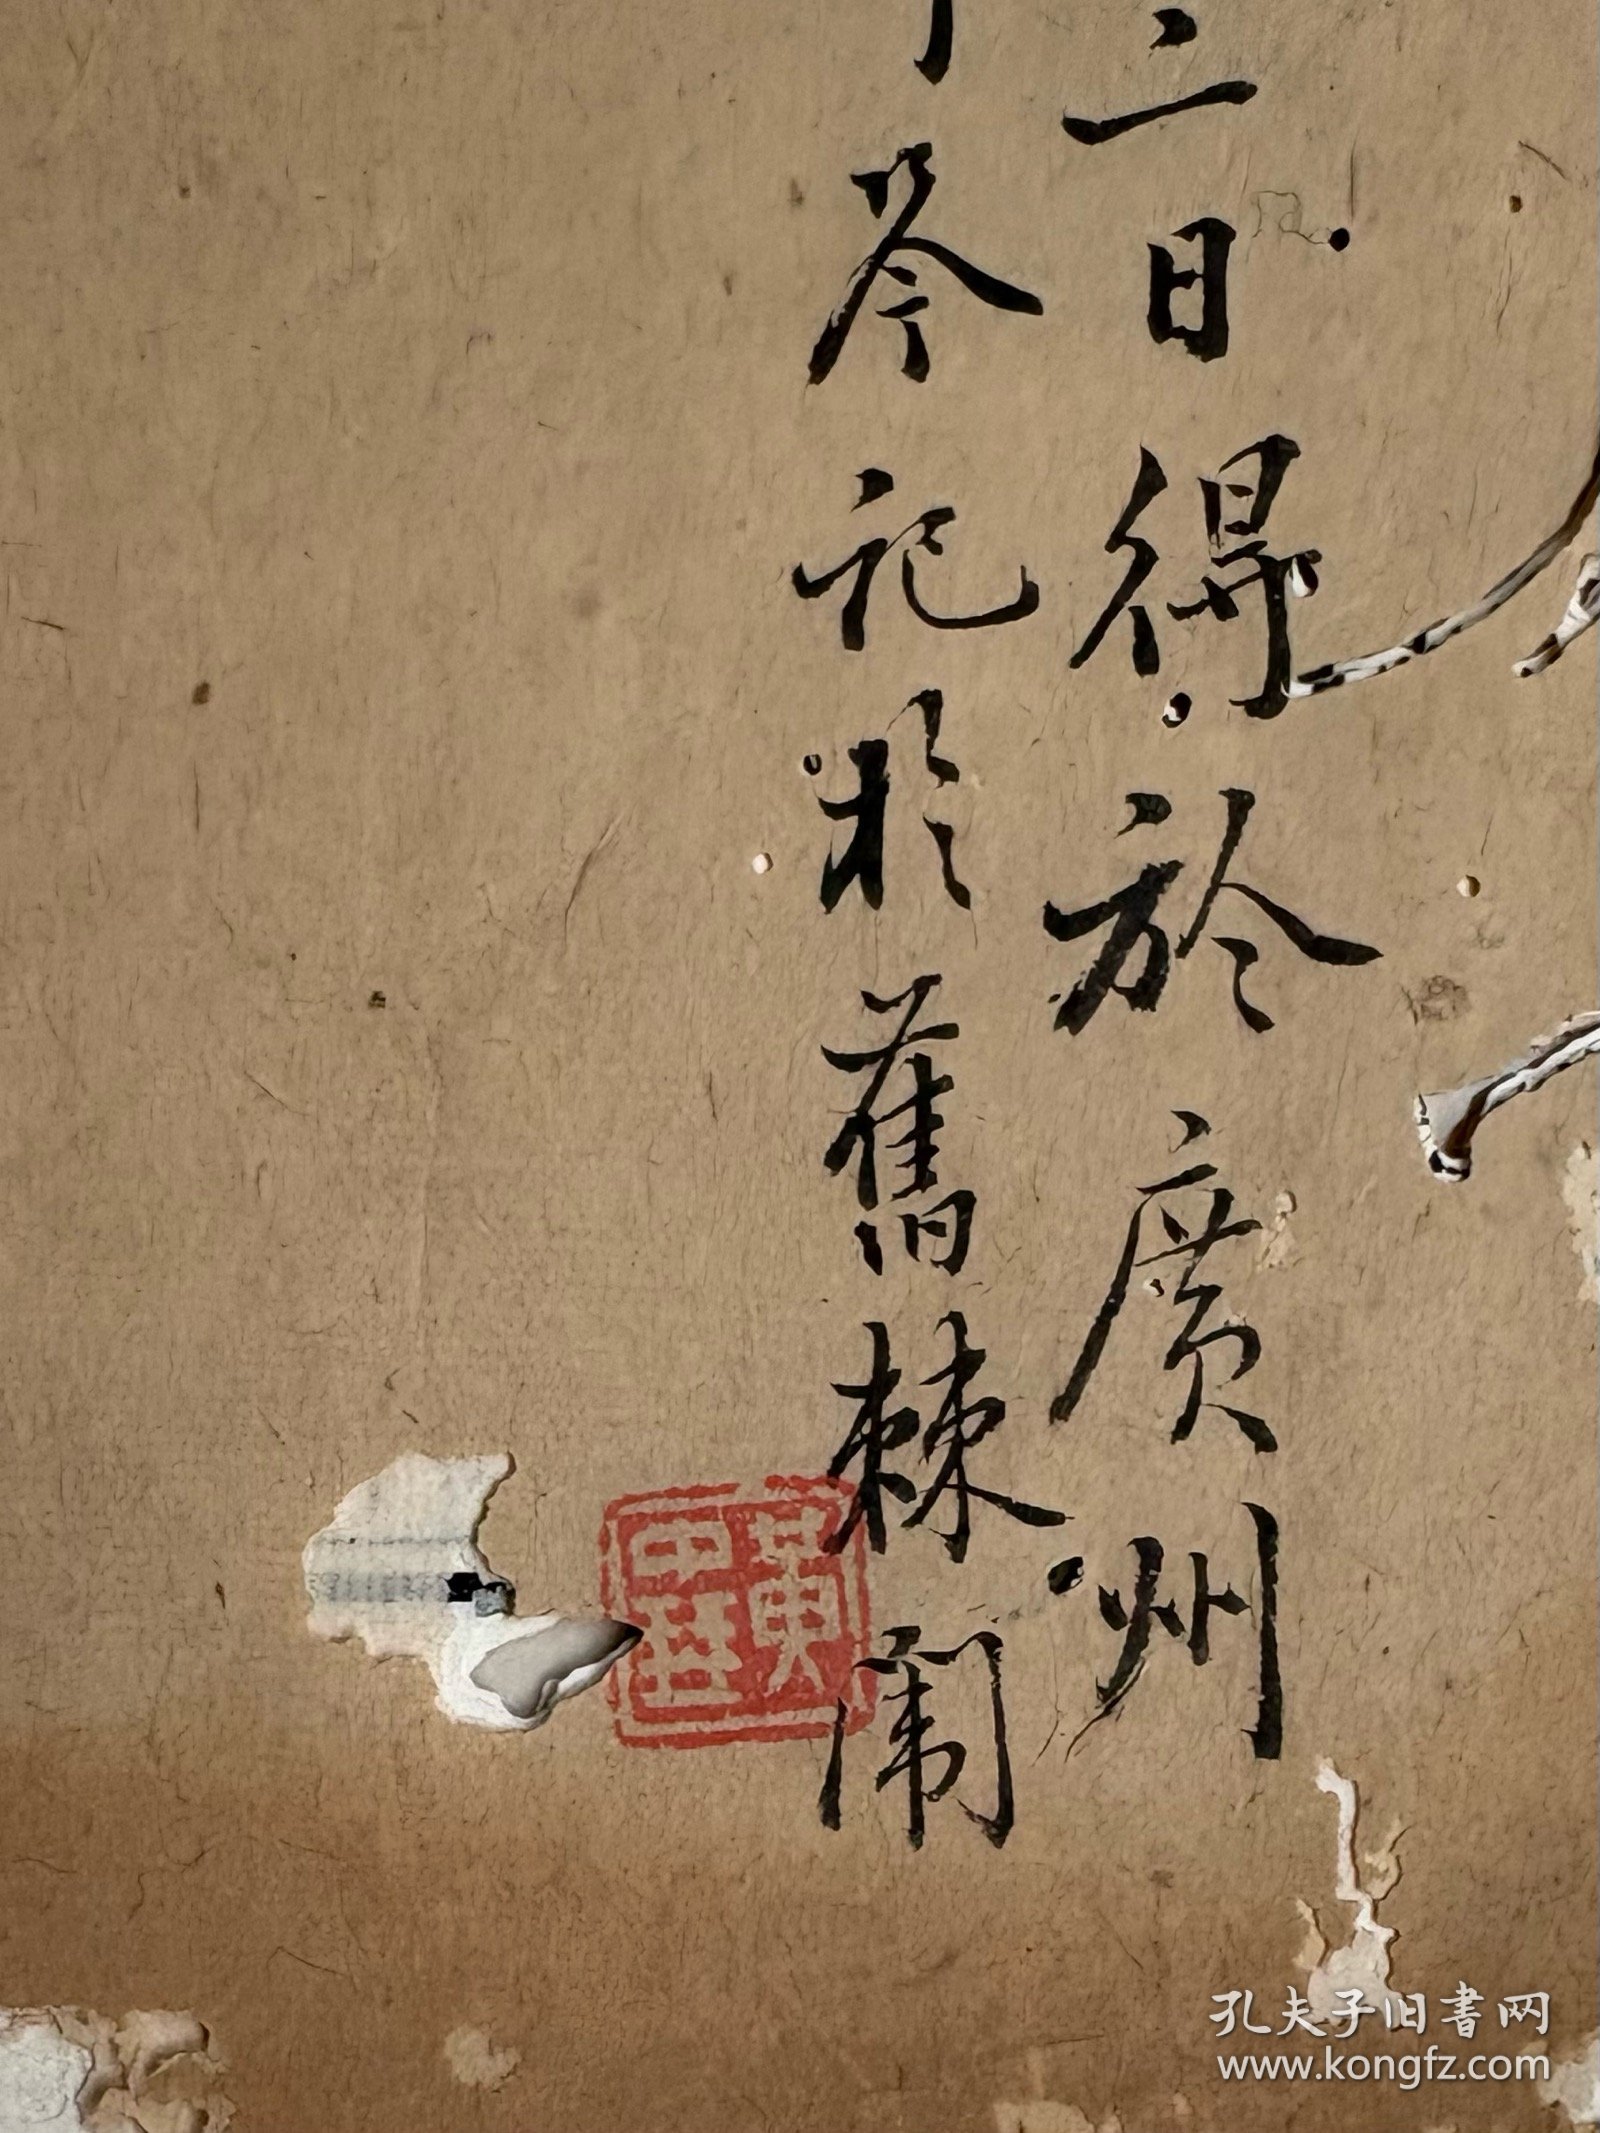 二日得於廣州
芩記於舊棘闈
黄
孔夫子旧書网
www.kongfz.com